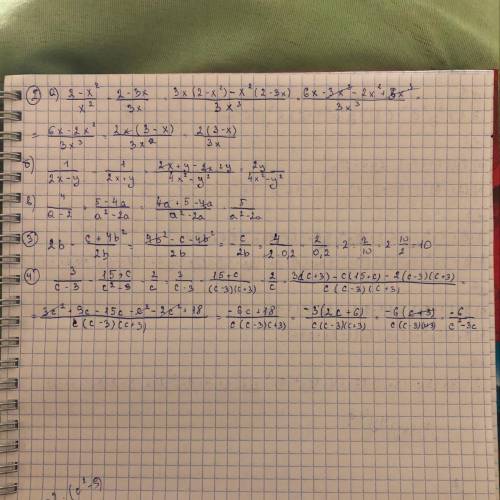 ② а) (2-x²)/x² - (2-3x)/3x = (3x(2-x²)-x²(2-3x))/3x³ = (6x-3x³-2x²+3x³)/3x³ =
= (6x-2x²)/3x³ = 2x(3-x)/3x³ = 2(3-x)/3x
б) 1/(2x-y) - 1/(2x+y) = (2x+y-2x+y)/(4x²-y²) = 2y/(4x²-y²)
в) 4/(a-2) + (5-4a)/(a²-2a) = (4a+5-4a)/(a²-2a) = 5/(a²-2a)
③ 2b - (c+4b²)/2b = (4b²-c-4b²)/2b = -c/2b = 4/(2·0,2) = 2/0,2 = 2:2/10 = 2·10/2 = 10
④ 3/(c-3) - (15+c)/(c²-9) - 2/c = 3/(c-3) - (15+c)/((c-3)(c+3)) - 2/c = (3c(c+3)-c(15+c)-2(c-3)(c+3))/(c(c-3)(c+3)) =
= (3c²+9c-15c-c²-2c²+18)/(c(c-3)(c+3)) = (-6c+18)/(c(c-3)(c+3)) = -3(2c+6)/(c(c-3)(c+3)) = -6(c+3)/(c(c-3)(c+3)) = -6/(c²-3c)